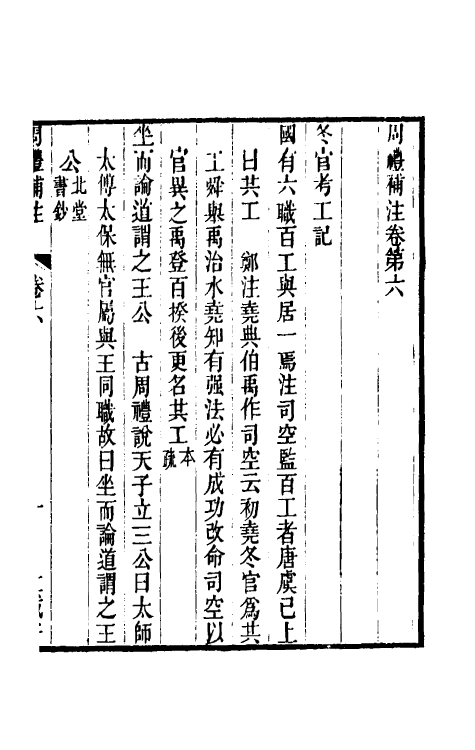 周禮補注卷第六
冬官考工記
國有六職百工與居一焉注司空監百工者唐虞已上
曰共工　鄭注堯典伯禹作司空云初堯冬官爲共
工舜舉禹治水堯知有强法必有成功改命司空以
官異之禹登百揆後更名共工本疏
坐而論道謂之王公　古周禮說天子立三公曰太師
太傅太保無官屬與王同職故曰坐而論道謂之王
公北堂書鈔
周禮補注　卷六　一